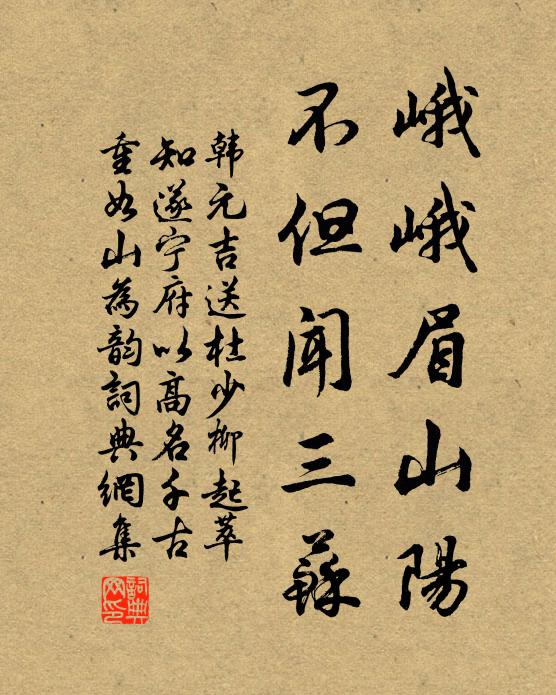 峨峨眉山陽
不但聞三蘇
韩元吉送杜少柳起莘
知遂宁府以高名千古
重如山為韵詞典網集
詞典网印